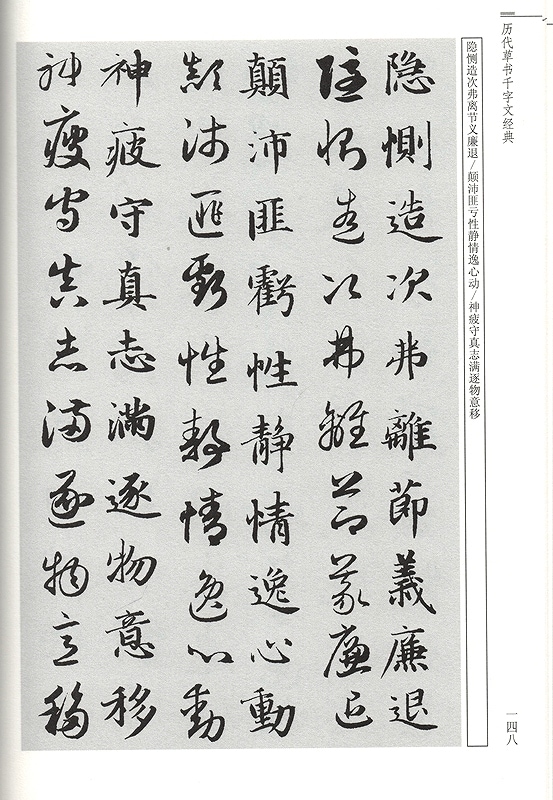 历代草书千字文经典
隐恻造次弗离节义廉退/颠沛匪亏性静情逸心动/神疲守真志满逐物意移
隐惻造次弗離節義廉退
隐惻造次弗離節義廉退
顛沛匪虧性静情逸心動
顛沛匪虧性静情逸心動
神疲守真志満逐物意移
神疲守真志満逐物意移
一四八